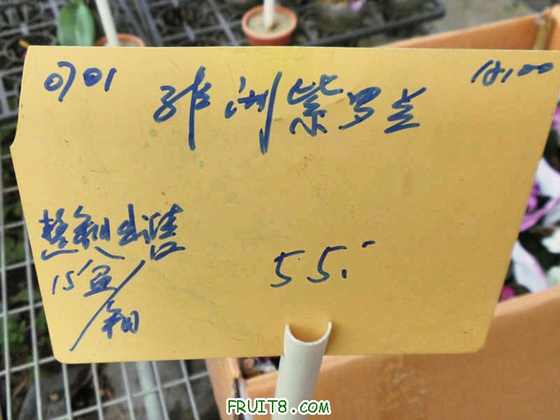 0701
18:00
非洲紫罗兰
整箱出售
15盆/箱
55.-
FRUIT8.COM